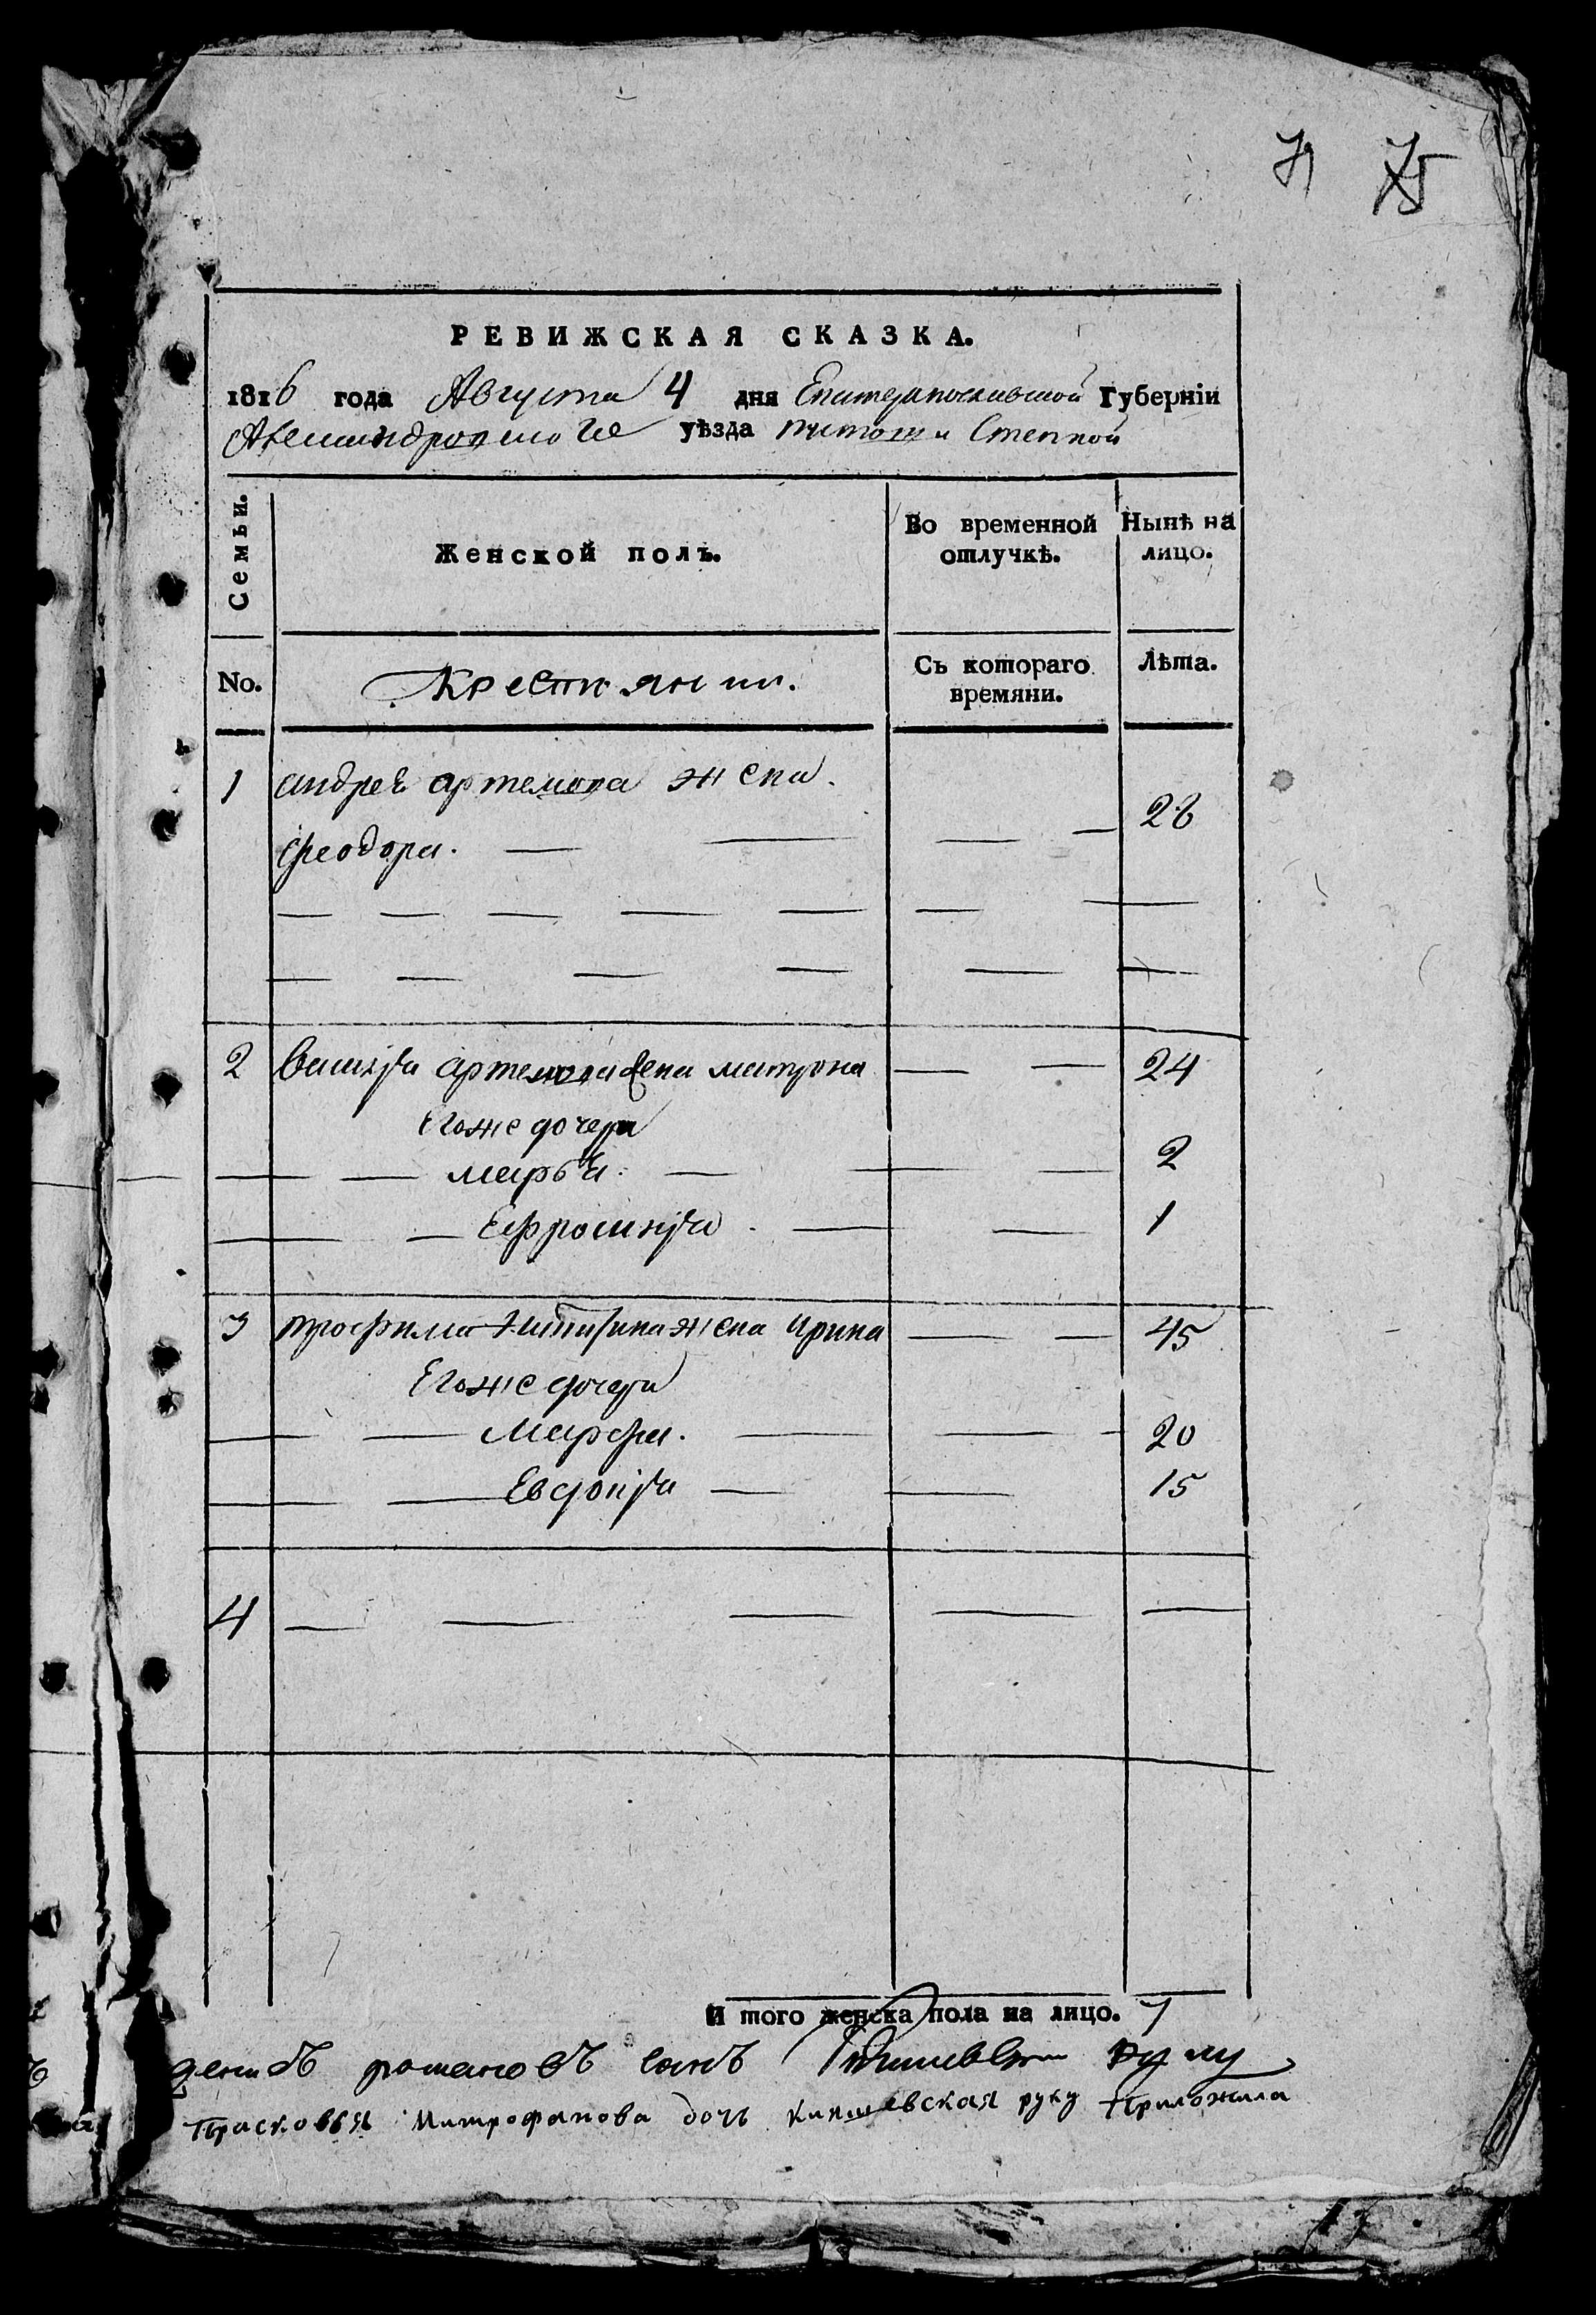 71 75
РЕВИЖСКАЯ СКАЗКА.
1816 года Августа 4 дня Екатеринославской Губерніи
Александровского уѣзда Степной
Семьи.
Женской полъ.
Во временной отлучкѣ.
Нынѣ на лицо.
No.
Крестьянъ.
Съ котораго времяни.
Лѣта.
1 андрея артемова жена.
феодора. 28
2 Василья артемова жена матрона 24
Его же дочери
марья. 2
Ефросинья 1
3 трофима Никитина жена Ирина 45
Его же дочери
Марфа. 20
Евдокія 15
4
И того женска пола на лицо. 7
романовъ сынъ руку
Прасковья Митрофанова дочь руку Приложила